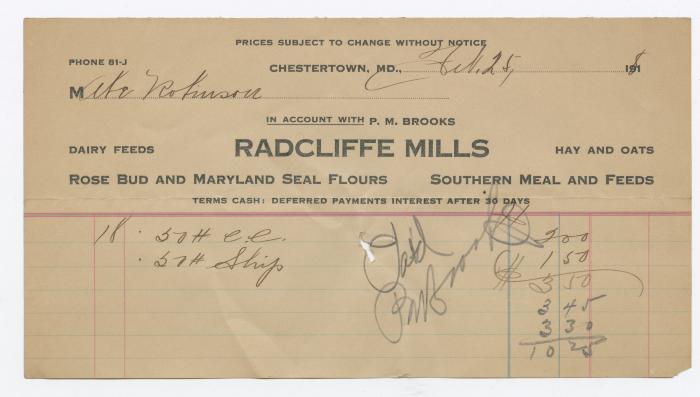 PRICES SUBJECT TO CHANGE WITHOUT NOTICE
PHONE 81-J
CHESTERTOWN, MD., Feb. 25, 1918
M Abe Robinson
IN ACCOUNT WITH P. M. BROOKS
DAIRY FEEDS RADCLIFFE MILLS HAY AND OATS
ROSE BUD AND MARYLAND SEAL FLOURS SOUTHERN MEAL AND FEEDS
TERMS CASH: DEFERRED PAYMENTS INTEREST AFTER 30 DAYS
18 50# C.C. $ 2 00
50# Ship 1 50
$ 3 50
Paid
PM Brooks
3 45
3 30
10 25